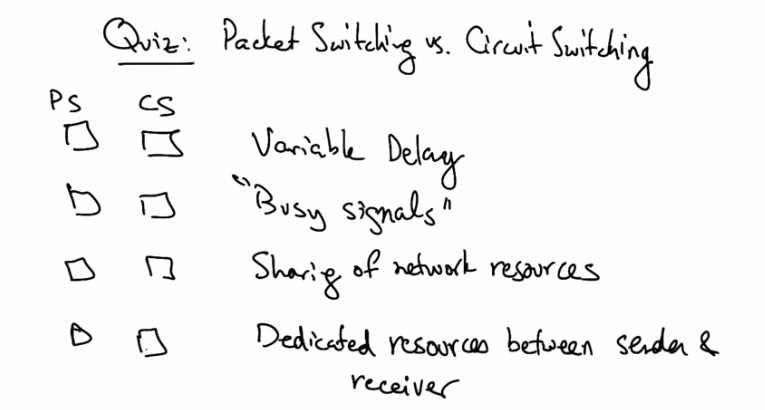 Quiz: Packet Switching vs. Circuit Switching
PS CS
Variable Delay
"Busy signals"
Sharing of network resources
Dedicated resources between sender &
receiver